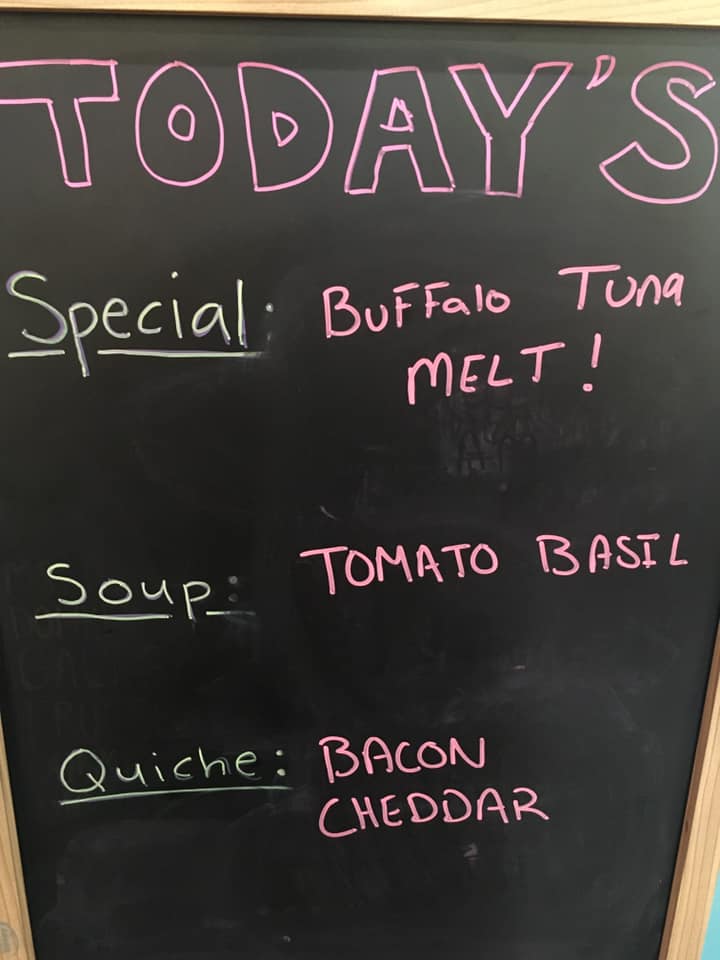 TODAY'S
Special: BUFFalo Tuna
MELT!
Soup: TOMATO BASIL
Quiche: BACON
CHEDDAR